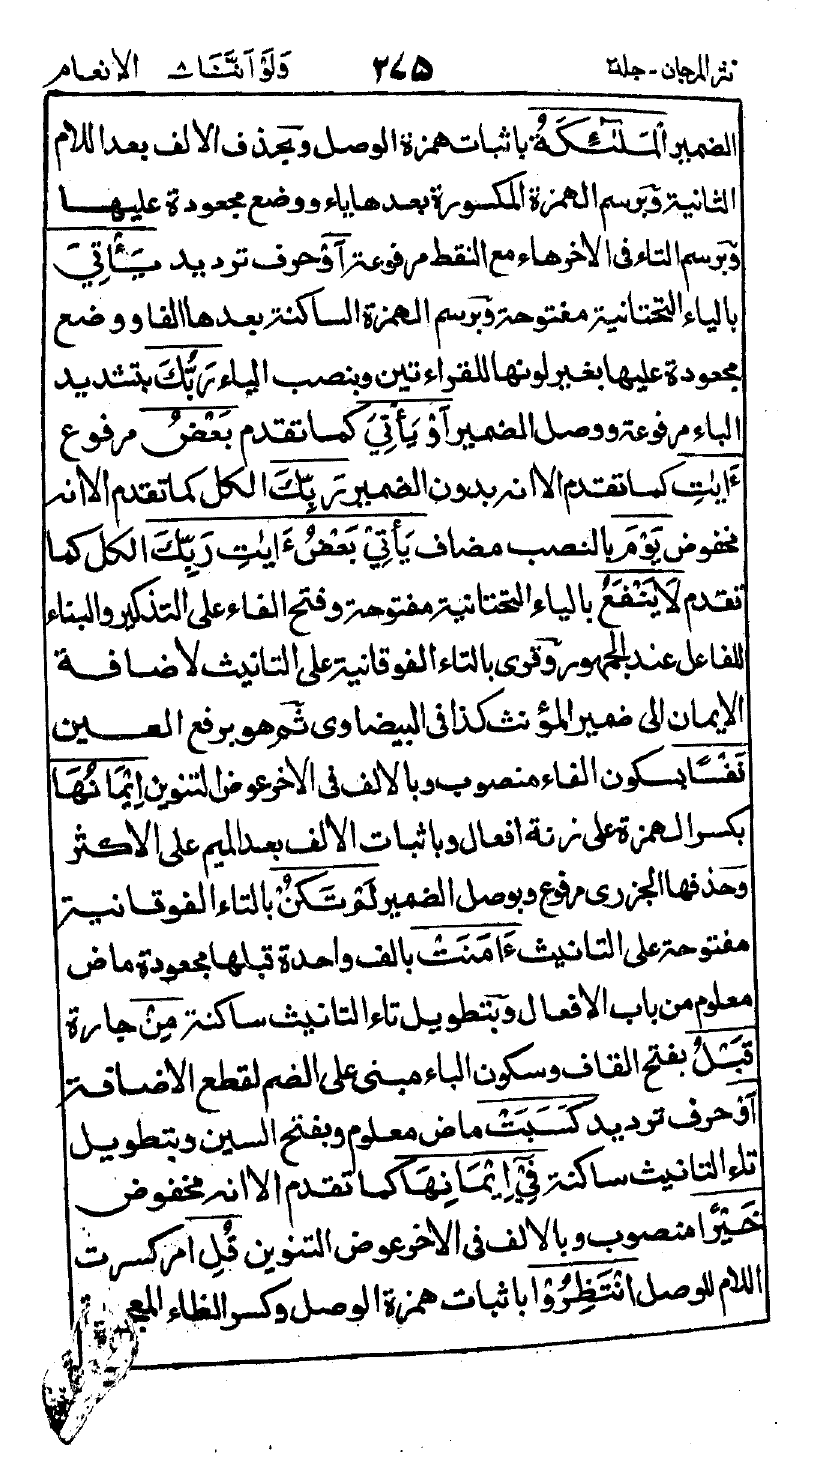 نثر المرجان - جلد٢ ٢٤٥ وَلَوْ اَنَّنَا ٨ الانعام
الضمير الْمَلٰٓئِكَةُ باثبات همزة الوصل وبحذف الالف بعد اللام
الثانية وَبرسم الهمزة المكسورة بعدها ياء ووضع مجعودة عليها
وَبرسم التاء فى الاخرهاء مع النقط مرفوعة اَوْ حرف ترديد يَأْتِيَ
بالياء التحتانية مفتوحة وَبرسم الهمزة الساكنة بعدها الفا ووضع
مجعودة عليها بغير لونها للقراءتين وبنصب الياء رَبُّكَ بتشديد
الباء مرفوعة ووصل الضمير اَوْ يَأْتِيَ كما تقدم بَعْضُ مرفوع
ءَايٰتِ كما تقدم الا انه بدون الضمير رَبِّكَ الكل كما تقدم الا انه
مخفوض يَوْمَ بالنصب مضاف يَأْتِيْ بَعْضُ ءَايٰتِ رَبِّكَ الكل كما
تقدم لَا يَنْفَعُ بالياء التحتانية مفتوحة وفتح الفاء على التذكير والبناء
للفاعل عند الجمهور وَقرى بالتاء الفوقانية على التانيث لاضافة
الايمان الى ضمير المؤنث كذا فى البيضاوى ثم هو برفع العين
نَفْسًا بسكون الفاء منصوب وبالالف فى الاخر عوض التنوين اِيْمَانُهَا
بكسر الهمزة على زنة افعال وباثبات الالف بعد الميم على الاكثر
وحذفها الجزرى مرفوع وبوصل الضمير لَمْ تَكُنْ بالتاء الفوقانية
مفتوحة على التانيث ءَامَنَتْ بالف واحدة قبلها مجعودة ماض
معلوم من باب الافعال وَبتطويل تاء التانيث ساكنة مِنْ جارة
قَبْلُ بفتح القاف وسكون الباء مبنى على الضم لقطع الاضافة
اَوْ حرف ترديد كَسَبَتْ ماض معلوم وبفتح السين وبتطويل
تاء التانيث ساكنة فِيْٓ اِيْمَانِهَا كما تقدم الا انه مخفوض
خَيْرًا منصوب وبالالف فى الاخر عوض التنوين قُلِ امر كسرت
اللام للوصل انْتَظِرُوْا باثبات همزة الوصل وكسر الظاء